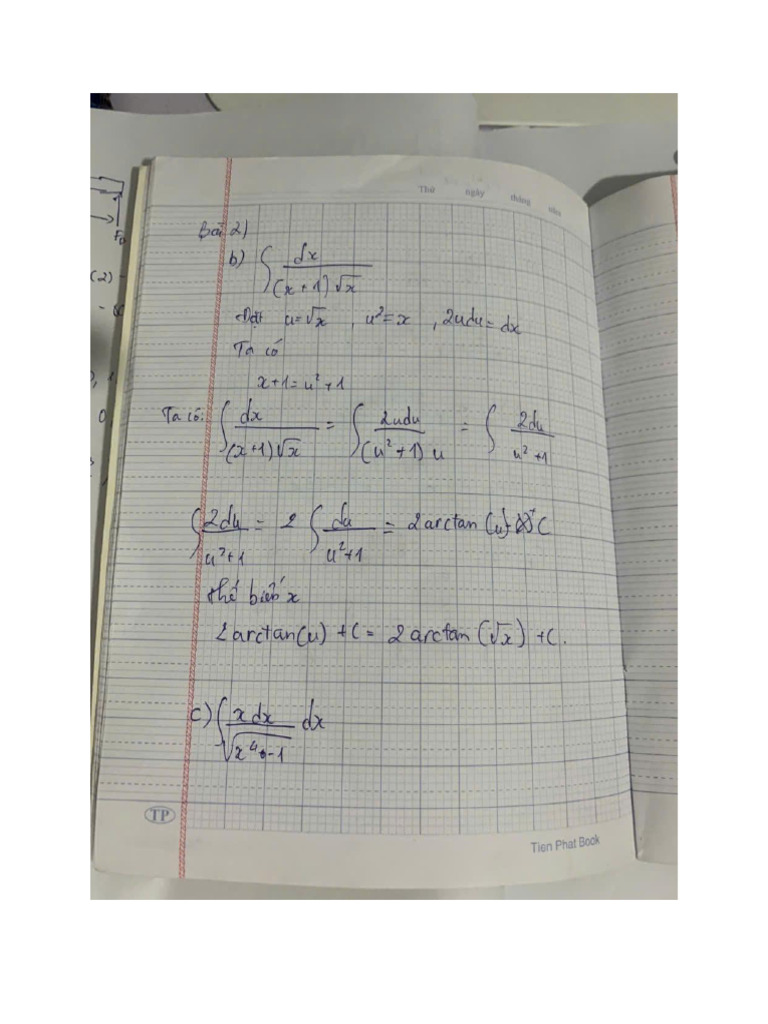 Thứ ngày tháng năm
Bài 2)
b) ∫ dx / (x+1)√x
Đặt u=√x , u²=x , 2udu=dx
Ta có
x+1=u²+1
Ta có: ∫ dx / (x+1)√x = ∫ 2udu / (u²+1) u = ∫ 2du / u²+1
∫ 2du / u²+1 = 2 ∫ du / u²+1 = 2 arctan (u) + C
thế biến x
2 arctan(u) + C = 2 arctan (√x) + C.
c) ∫ x dx / √x⁴-1 dx
TP
Tien Phat Book
(2)
0